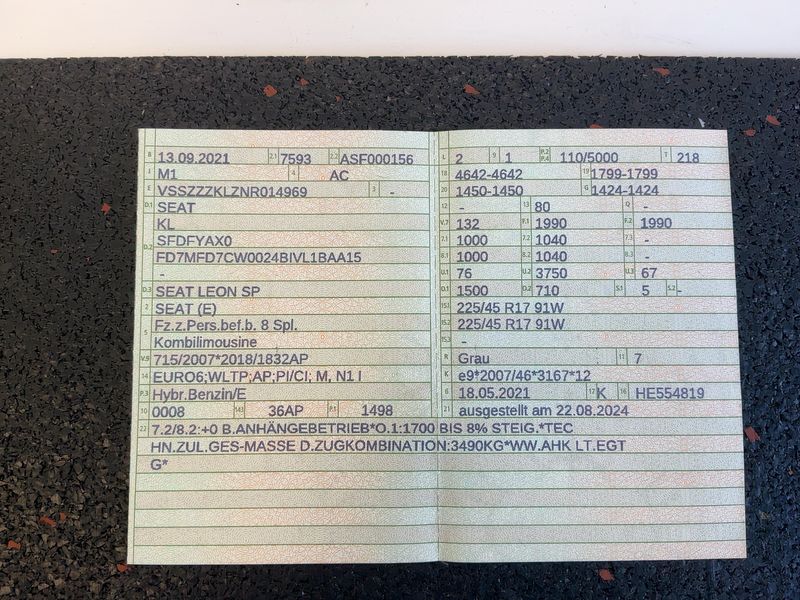 B 13.09.2021 2.1 7593 2.2 ASF000156
J M1 4 AC
E VSSZZZKLZNR014969 3 -
D.1 SEAT
KL
D.2 SFDFYAX0
FD7MFD7CW0024BIVL1BAA15
-
D.3 SEAT LEON SP
2 SEAT (E)
5 Fz.z.Pers.bef.b. 8 Spl.
Kombilimousine
V.9 715/2007*2018/1832AP
14 EURO6;WLTP;AP;PI/CI; M, N1 I
P.3 Hybr.Benzin/E
10 0008 14.1 36AP P.1 1498
L 2 9 1 P.2 P.4 110/5000 T 218
18 4642-4642 19 1799-1799
20 1450-1450 G 1424-1424
12 - 13 80 Q -
V.7 132 F.1 1990 F.2 1990
7.1 1000 7.2 1040 7.3 -
8.1 1000 8.2 1040 8.3 -
U.1 76 U.2 3750 U.3 67
O.1 1500 O.2 710 S.1 5 S.2 -
15.1 225/45 R17 91W
15.2 225/45 R17 91W
15.3 -
R Grau 11 7
K e9*2007/46*3167*12
6 18.05.2021 17 K 16 HE554819
21 ausgestellt am 22.08.2024
22 7.2/8.2:+0 B.ANHÄNGEBETRIEB*O.1:1700 BIS 8% STEIG.*TEC
HN.ZUL.GES-MASSE D.ZUGKOMBINATION:3490KG*WW.AHK LT.EGT
G*